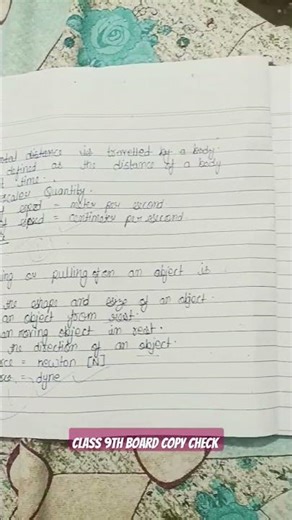 total distance is travelled by a body
defined as the distance of a body
time.
scaler Quantity.
speed = meter per second
speed = centimeter per second
or pulling of on an object is
the shape and size of an object.
an object from rest.
moving object in rest.
the direction of an object.
= newton [N]
= dyne
CLASS 9TH BOARD COPY CHECK